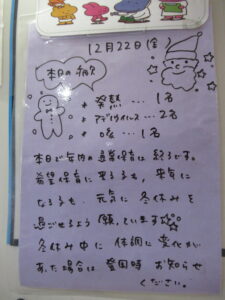 12月22日(金)
本日の病欠
* 発熱 … 1名
* アデノウイルス … 2名
* 咳 … 1名
本日で年内の通常保育は終了です。
希望保育に来る子も、来年に
なる子も、元気に冬休みを
過ごせるよう願っています
冬休み中に体調に変化が
あった場合は、登園時お知らせ
ください。